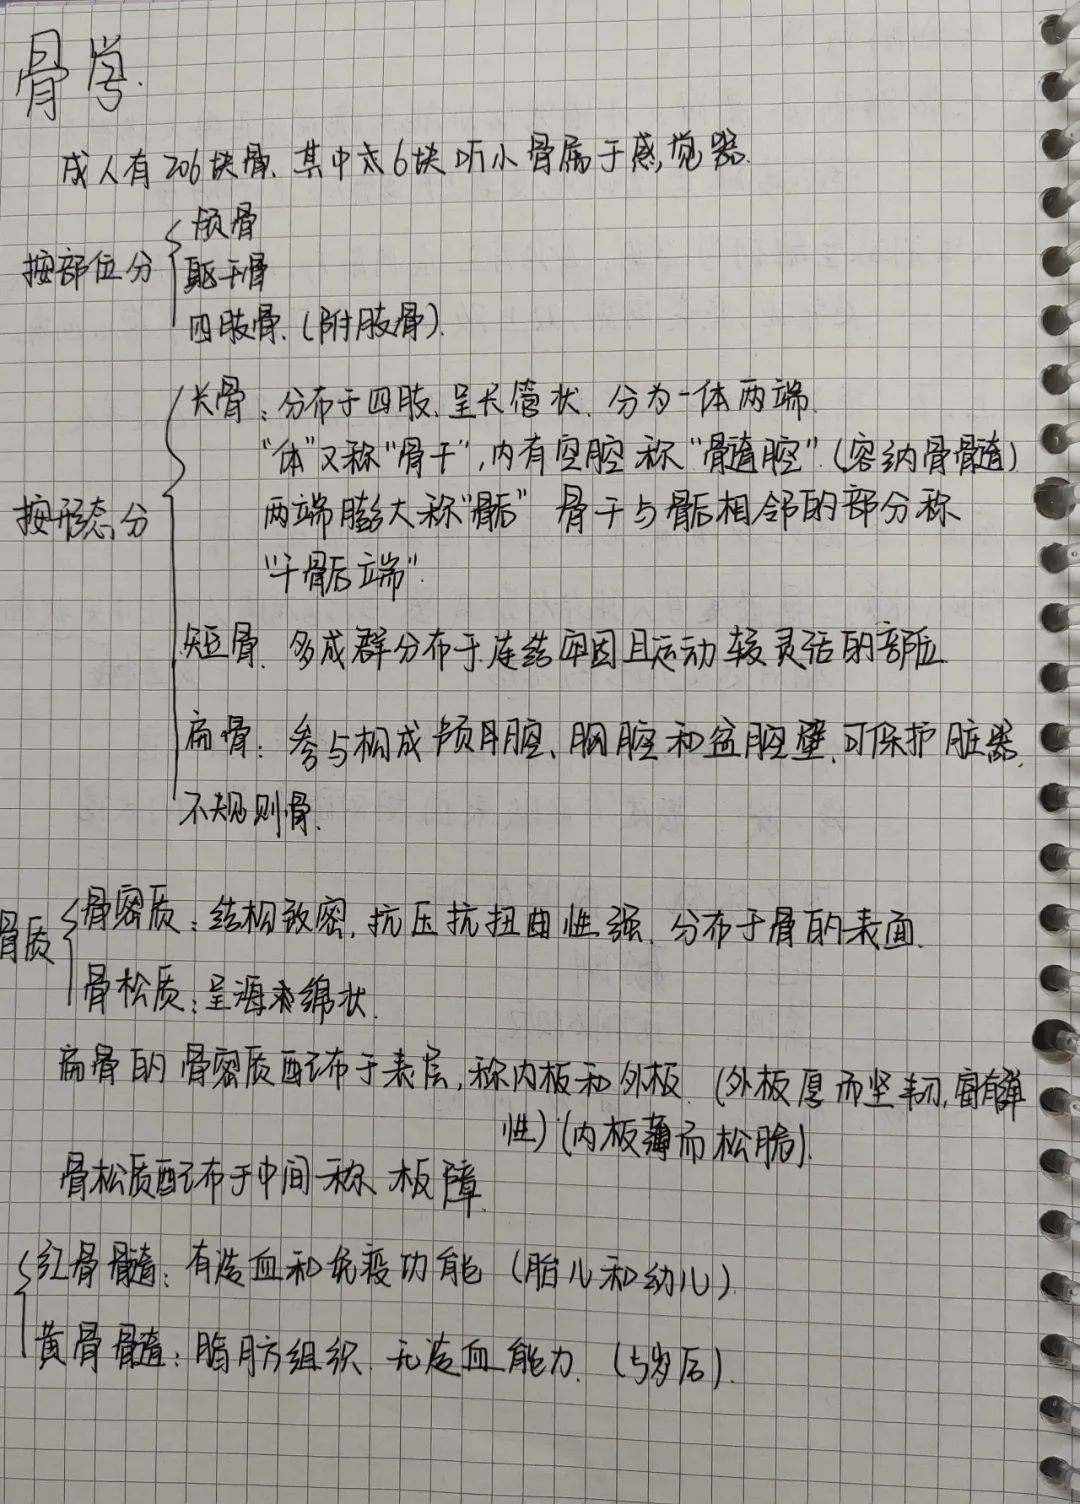 骨学.
成人有206块骨.其中有6块听小骨属于感觉器.
按部位分
颅骨
躯干骨
四肢骨.(附肢骨).
按形态分
长骨:分布于四肢.呈长管状.分为一体两端.
“体”又称“骨干”,内有空腔称“骨髓腔”.(容纳骨骨髓)
两端膨大称“骺” 骨干与骺相邻的部分称
“干骺端”.
短骨.多成群分布于连结牢固且运动较灵活的部位.
扁骨:参与构成颅腔、胸腔和盆腔壁.可保护脏器.
不规则骨.
骨质
骨密质:结构致密,抗压抗扭曲性强.分布于骨的表面.
骨松质:呈海绵状.
扁骨的骨密质配布于表层,称内板和外板.(外板厚而坚韧,富有弹
性)(内板薄而松脆).
骨松质配布于中间称板障.
红骨髓:有造血和免疫功能(胎儿和幼儿)
黄骨髓:脂肪组织.无造血能力.(5岁后).